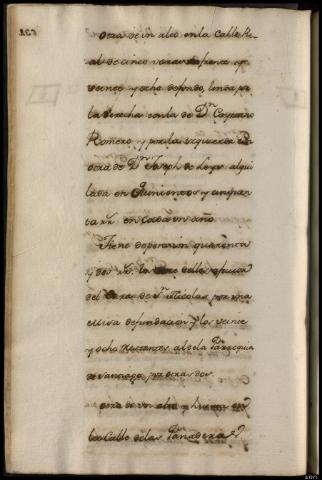 otra de un alto en la Calle Re-
al de cinco varas de frente y
veinte y ocho de fondo, linda por
la derecha con la de Dn Cayetano
Romero y por la izquierda con
otra de Dn Joseph de Leyva alqui
lada en Quinientos y cinquen
ta rr. en cada un año.
Tiene de pension quarenta
y dos rr. la
del Cura de Sn Nicolas por una
missa de fundacion y los veinte
y ocho restantes al de la Parroquia
de Santiago por otras dos.
otra de un alto y
la Calle de las Panaderas